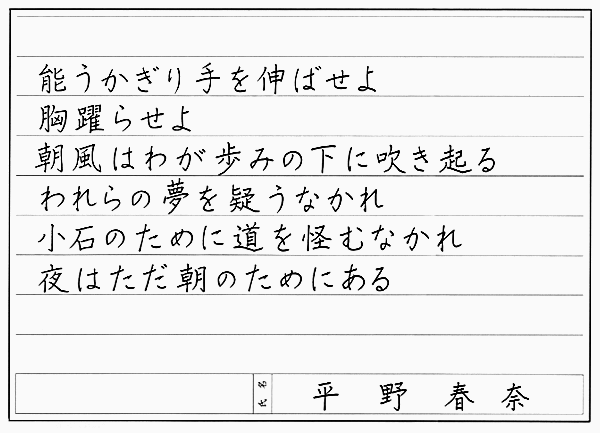 能うかぎり手を伸ばせよ
胸躍らせよ
朝風はわが歩みの下に吹き起る
われらの夢を疑うなかれ
小石のために道を怪むなかれ
夜はただ朝のためにある
氏名
平野春奈